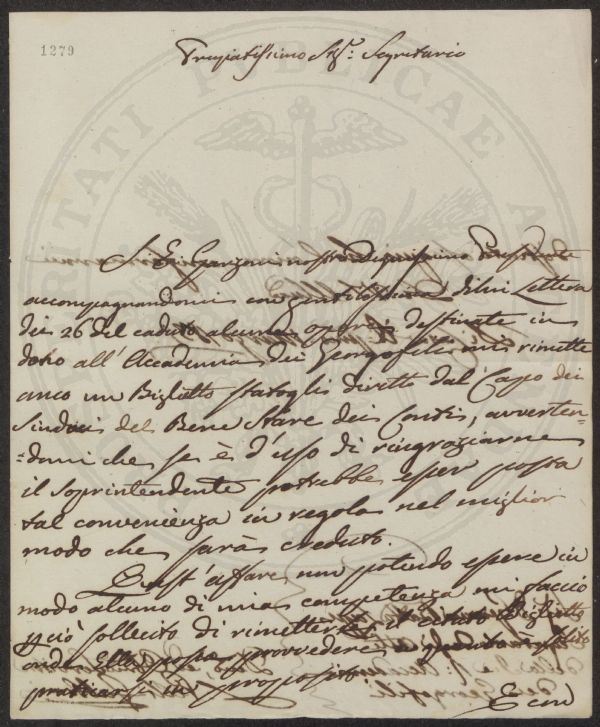 1279
Pregiatissimo Sig.r Segretario
S. E. Garzoni nostro Degnissimo Presidente
accompagnandomi con Gentilissima di lui Lettera
dei 26 del caduto alcune opere destinate in
dono all'Accademia dei Georgofili mi rimette
anco un Biglietto statogli diretto dal Capo dei
Sindaci del Bene Stare dei Conti, avverten-
=domi che se è d'uso di ringraziarne
il Soprintendente potrebbe esser posta
tal convenienza in regola nel miglior
modo che sarà creduto.
Quest'affare non potendo essere in
modo alcuno di mia competenza mi faccio
sollecito di rimetterle il citato Biglietto
onde Ella possa provvedere a quanto è solito
praticarsi in proposito.
E con